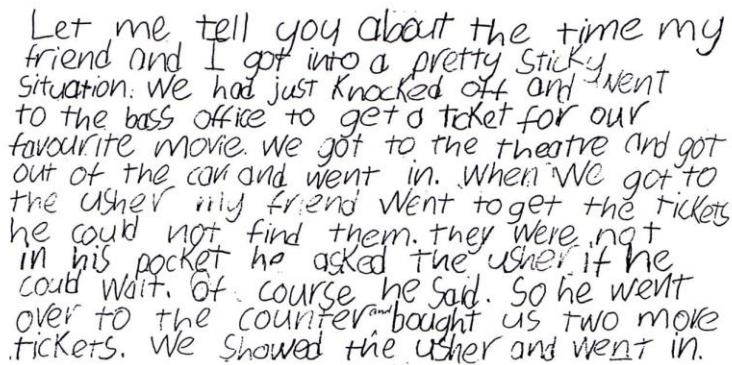 Let me tell you about the time my
friend and I got into a pretty sticky
situation. We had just knocked off and went
to the bass office to get a ticket for our
favourite movie. We got to the theatre and got
out of the car and went in. When we got to
the usher my friend went to get the tickets
he could not find them. they were not
in his pocket he asked the usher if he
could wait. Of course he said. So he went
over to the counter and bought us two more
tickets. We showed the usher and went in.